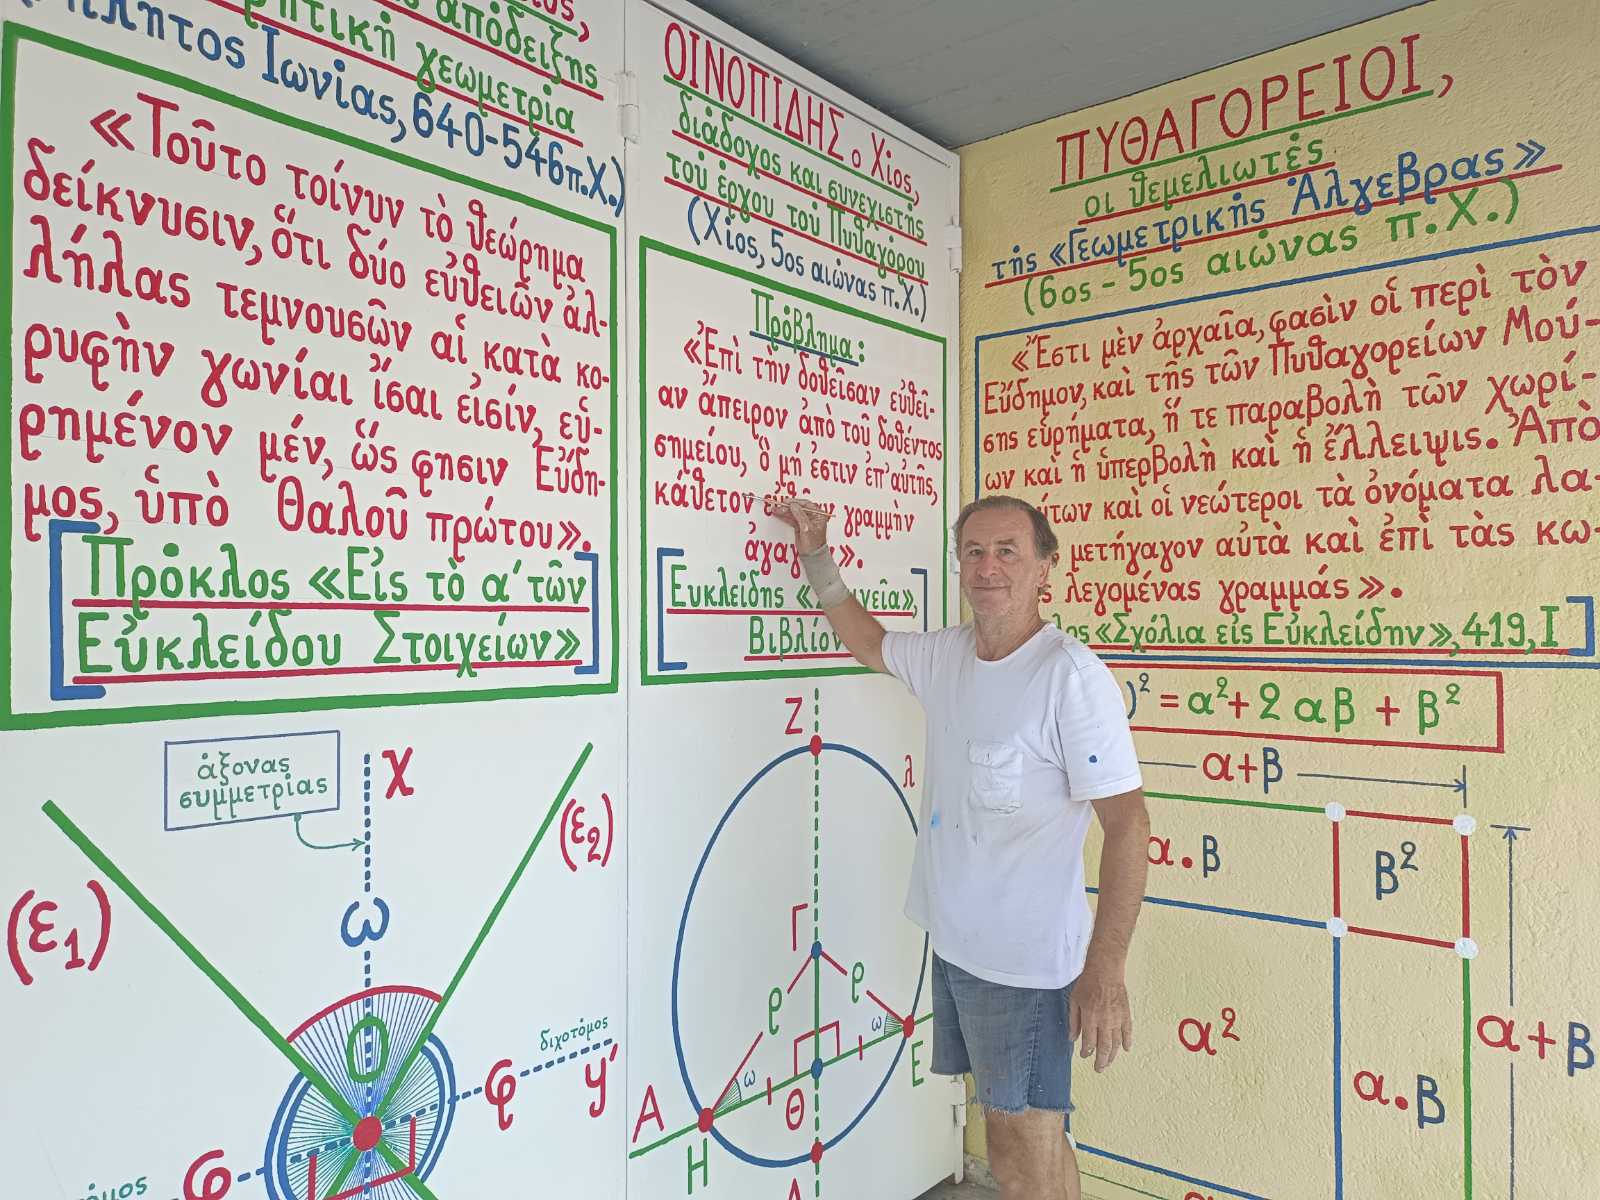 ἀπόδειξης
γεωμετρία
Ιωνίας, 640-546π.Χ.)
«Τοῦτο τοίνυν τὸ θεώρημα
δείκνυσιν, ὅτι δύο εὐθειῶν ἀλ-
λήλας τεμνουσῶν αἱ κατὰ κο-
ρυφὴν γωνίαι ἴσαι εἰσίν, εὑ-
ρημένον μέν, ὥς φησιν Εὔδη-
μος, ὑπὸ Θαλοῦ πρώτου».
Πρόκλος «Εἰς τὸ α΄ τῶν
Εὐκλείδου Στοιχείων»
άξονας
συμμετρίας
χ
(ε1)
(ε2)
ω
Ο
διχοτόμος
φ
y΄
φ
ΟΙΝΟΠΙΔΗΣ ο Χίος,
διάδοχος και συνεχιστής
του έργου του Πυθαγόρου
(Χίος, 5ος αιώνας π.Χ.)
Πρόβλημα:
«Ἐπὶ τὴν δοθεῖσαν εὐθεῖ-
αν ἄπειρον ἀπὸ τοῦ δοθέντος
σημείου, ὃ μή ἐστιν ἐπ'αὐτῆς,
κάθετον γραμμὴν
Ευκλείδης
Βιβλίον
Ζ
λ
Γ
ρ
ρ
ω
ω
Ε
Α
Θ
Η
ΠΥΘΑΓΟΡΕΙΟΙ,
οι θεμελιωτές
της «Γεωμετρικής Άλγεβρας»
(6ος - 5ος αιώνας π.Χ.)
«Ἔστι μὲν ἀρχαῖα, φασὶν οἱ περὶ τὸν
Εὔδημον, καὶ τῆς τῶν Πυθαγορείων Μού-
σης εὑρήματα, ἥ τε παραβολὴ τῶν χωρί-
ων καὶ ἡ ὑπερβολὴ καὶ ἡ ἔλλειψις. Ἀπὸ
καὶ οἱ νεώτεροι τὰ ὀνόματα λα-
μετήγαγον αὐτὰ καὶ ἐπὶ τὰς κω-
λεγομένας γραμμάς».
«Σχόλια εἰς Εὐκλείδην», 419, Ι
)² = α² + 2 αβ + β²
α+β
α.β
β²
α²
α+β
α.β